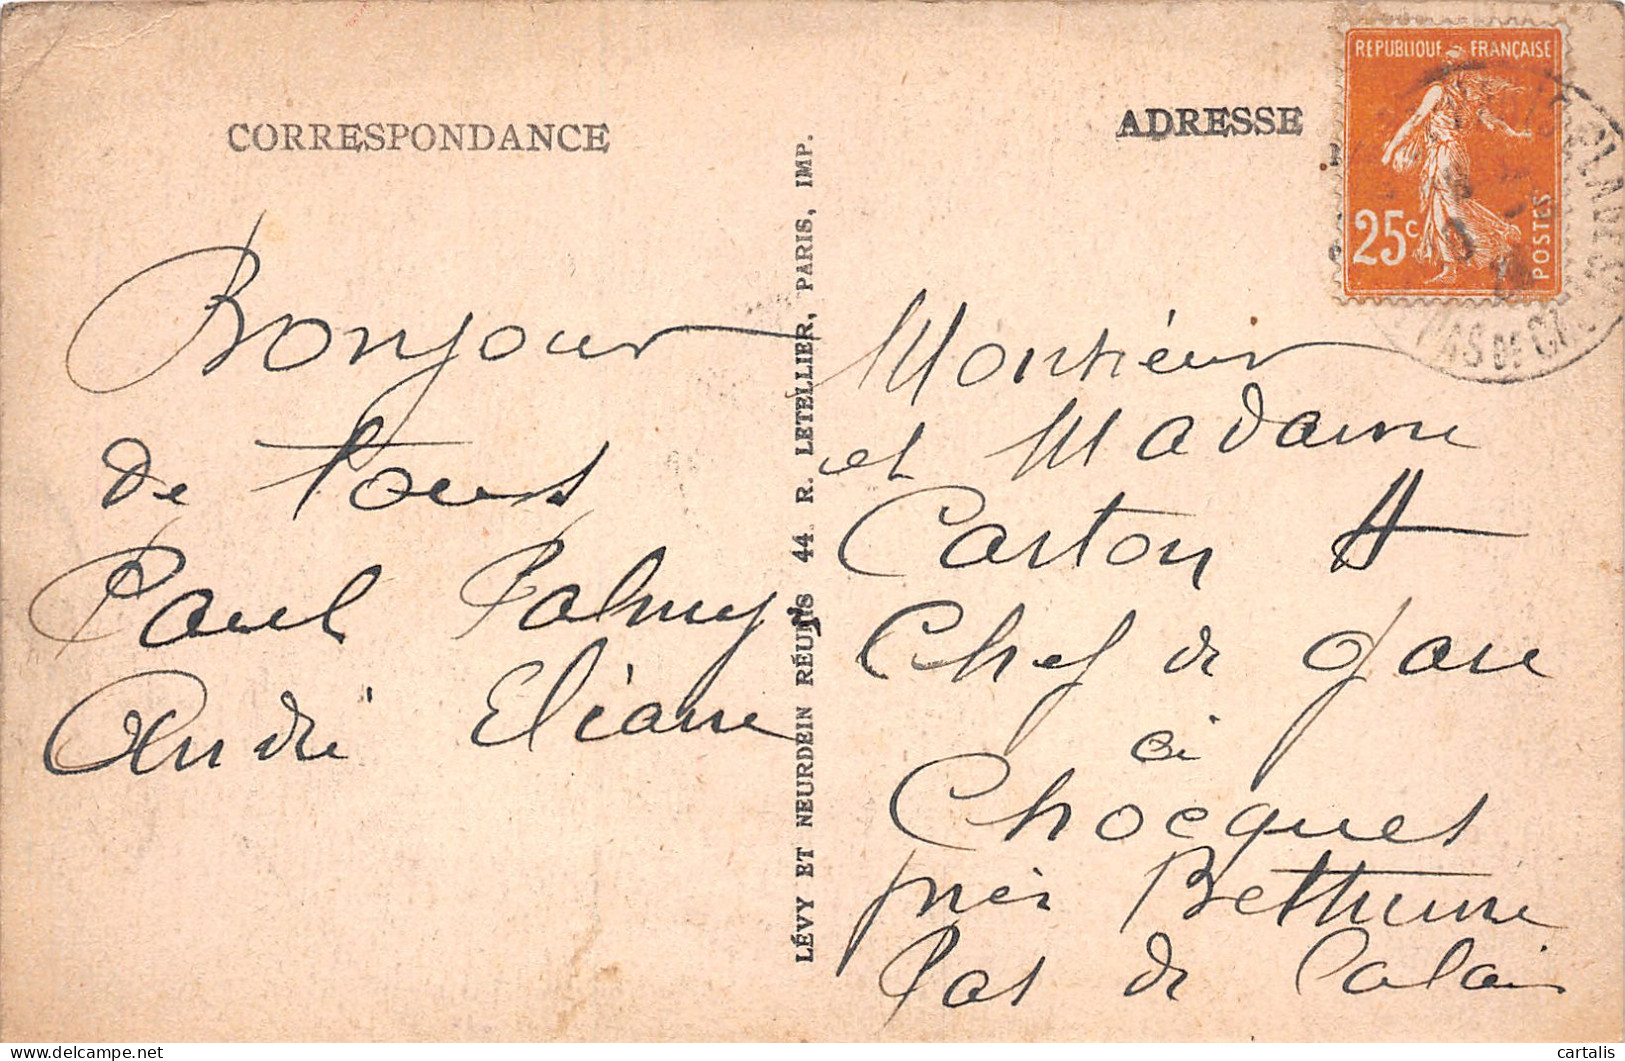 CORRESPONDANCE
Bonjour
de tous
Paul Palmyr
André Eliane
LÉVY ET NEURDEIN RÉUNIS 44. R. LETELLIER, PARIS, IMP.
ADRESSE
RÉPUBLIQUE FRANÇAISE
25c
POSTES
PAS DE CA
Monsieur
et Madame
Carton A
Chef de gare
à
Chocques
près Bethune
Pas de Calais
cartalis